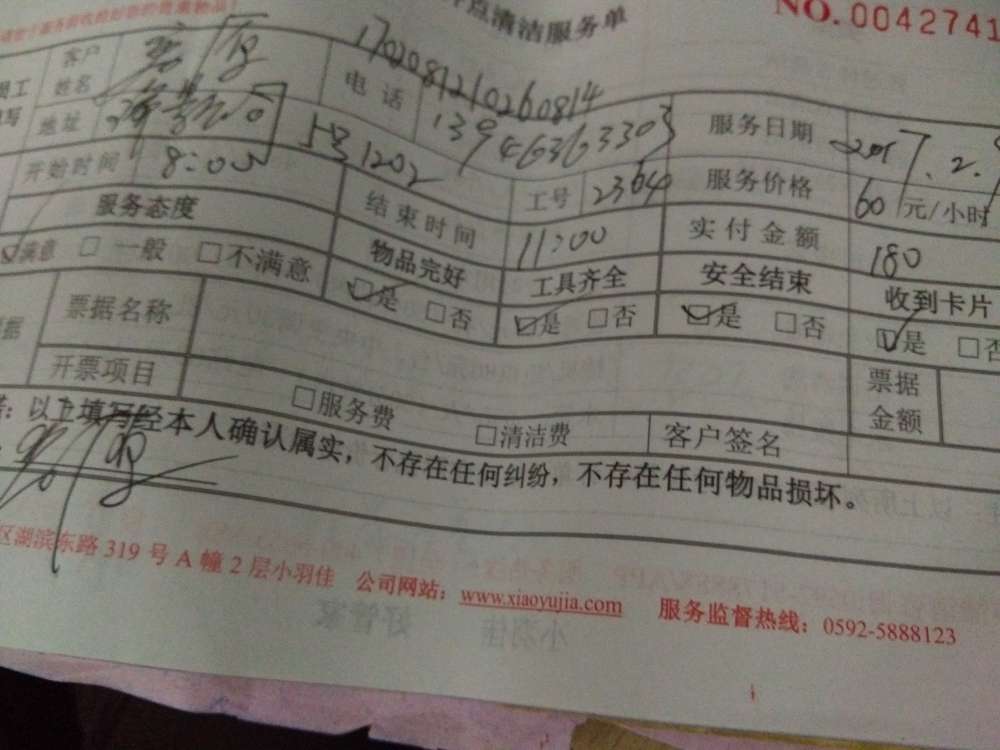 点清洁服务单
NO. 0042741
客户姓名
1702081210260814
电话 13946363303
服务日期 2017.2.
地址 5号1202
工号 2364
服务价格 60元/小时
开始时间 8:00
结束时间 11:00
实付金额 180
服务态度 物品完好 工具齐全 安全结束 收到卡片
满意 □ 一般 □不满意 □是 □否 □是 □否 □是 □否 □是 □否
票据名称
票据金额
开票项目 □服务费 □清洁费 客户签名
以上填写经本人确认属实，不存在任何纠纷，不存在任何物品损坏。
区湖滨东路 319 号 A 幢 2 层小羽佳 公司网站：www.xiaoyujia.com 服务监督热线：0592-5888123